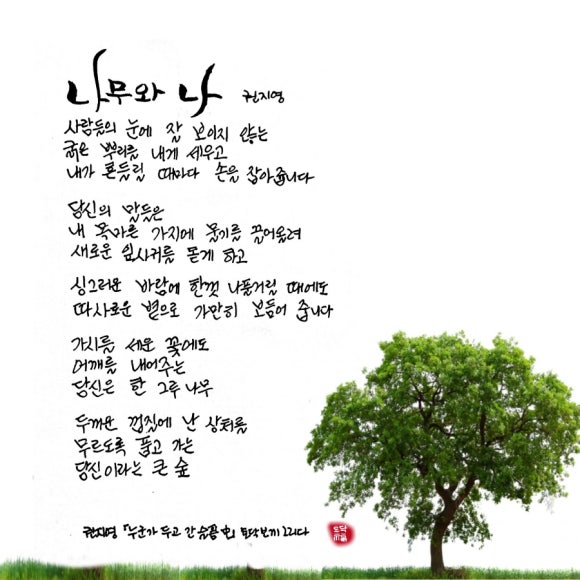 나무와 나 권지영
사람들의 눈에 잘 보이지 않는
굵은 뿌리를 내게 세우고
내가 흔들릴 때마다 손을 잡아줍니다
당신의 말들은
내 목마른 가지에 물기를 끌어올려
새로운 잎사귀를 돋게 하고
싱그러운 바람에 한껏 나풀거릴 때에도
따사로운 볕으로 가만히 보듬어 줍니다
가시를 세운 꽃에도
어깨를 내어주는
당신은 한 그루 나무
두꺼운 껍질에 난 상처를
무르도록 품고 가는
당신이라는 큰 숲
권지영 「누군가 두고 간 슬픔 中」 토닥보끼 그리다